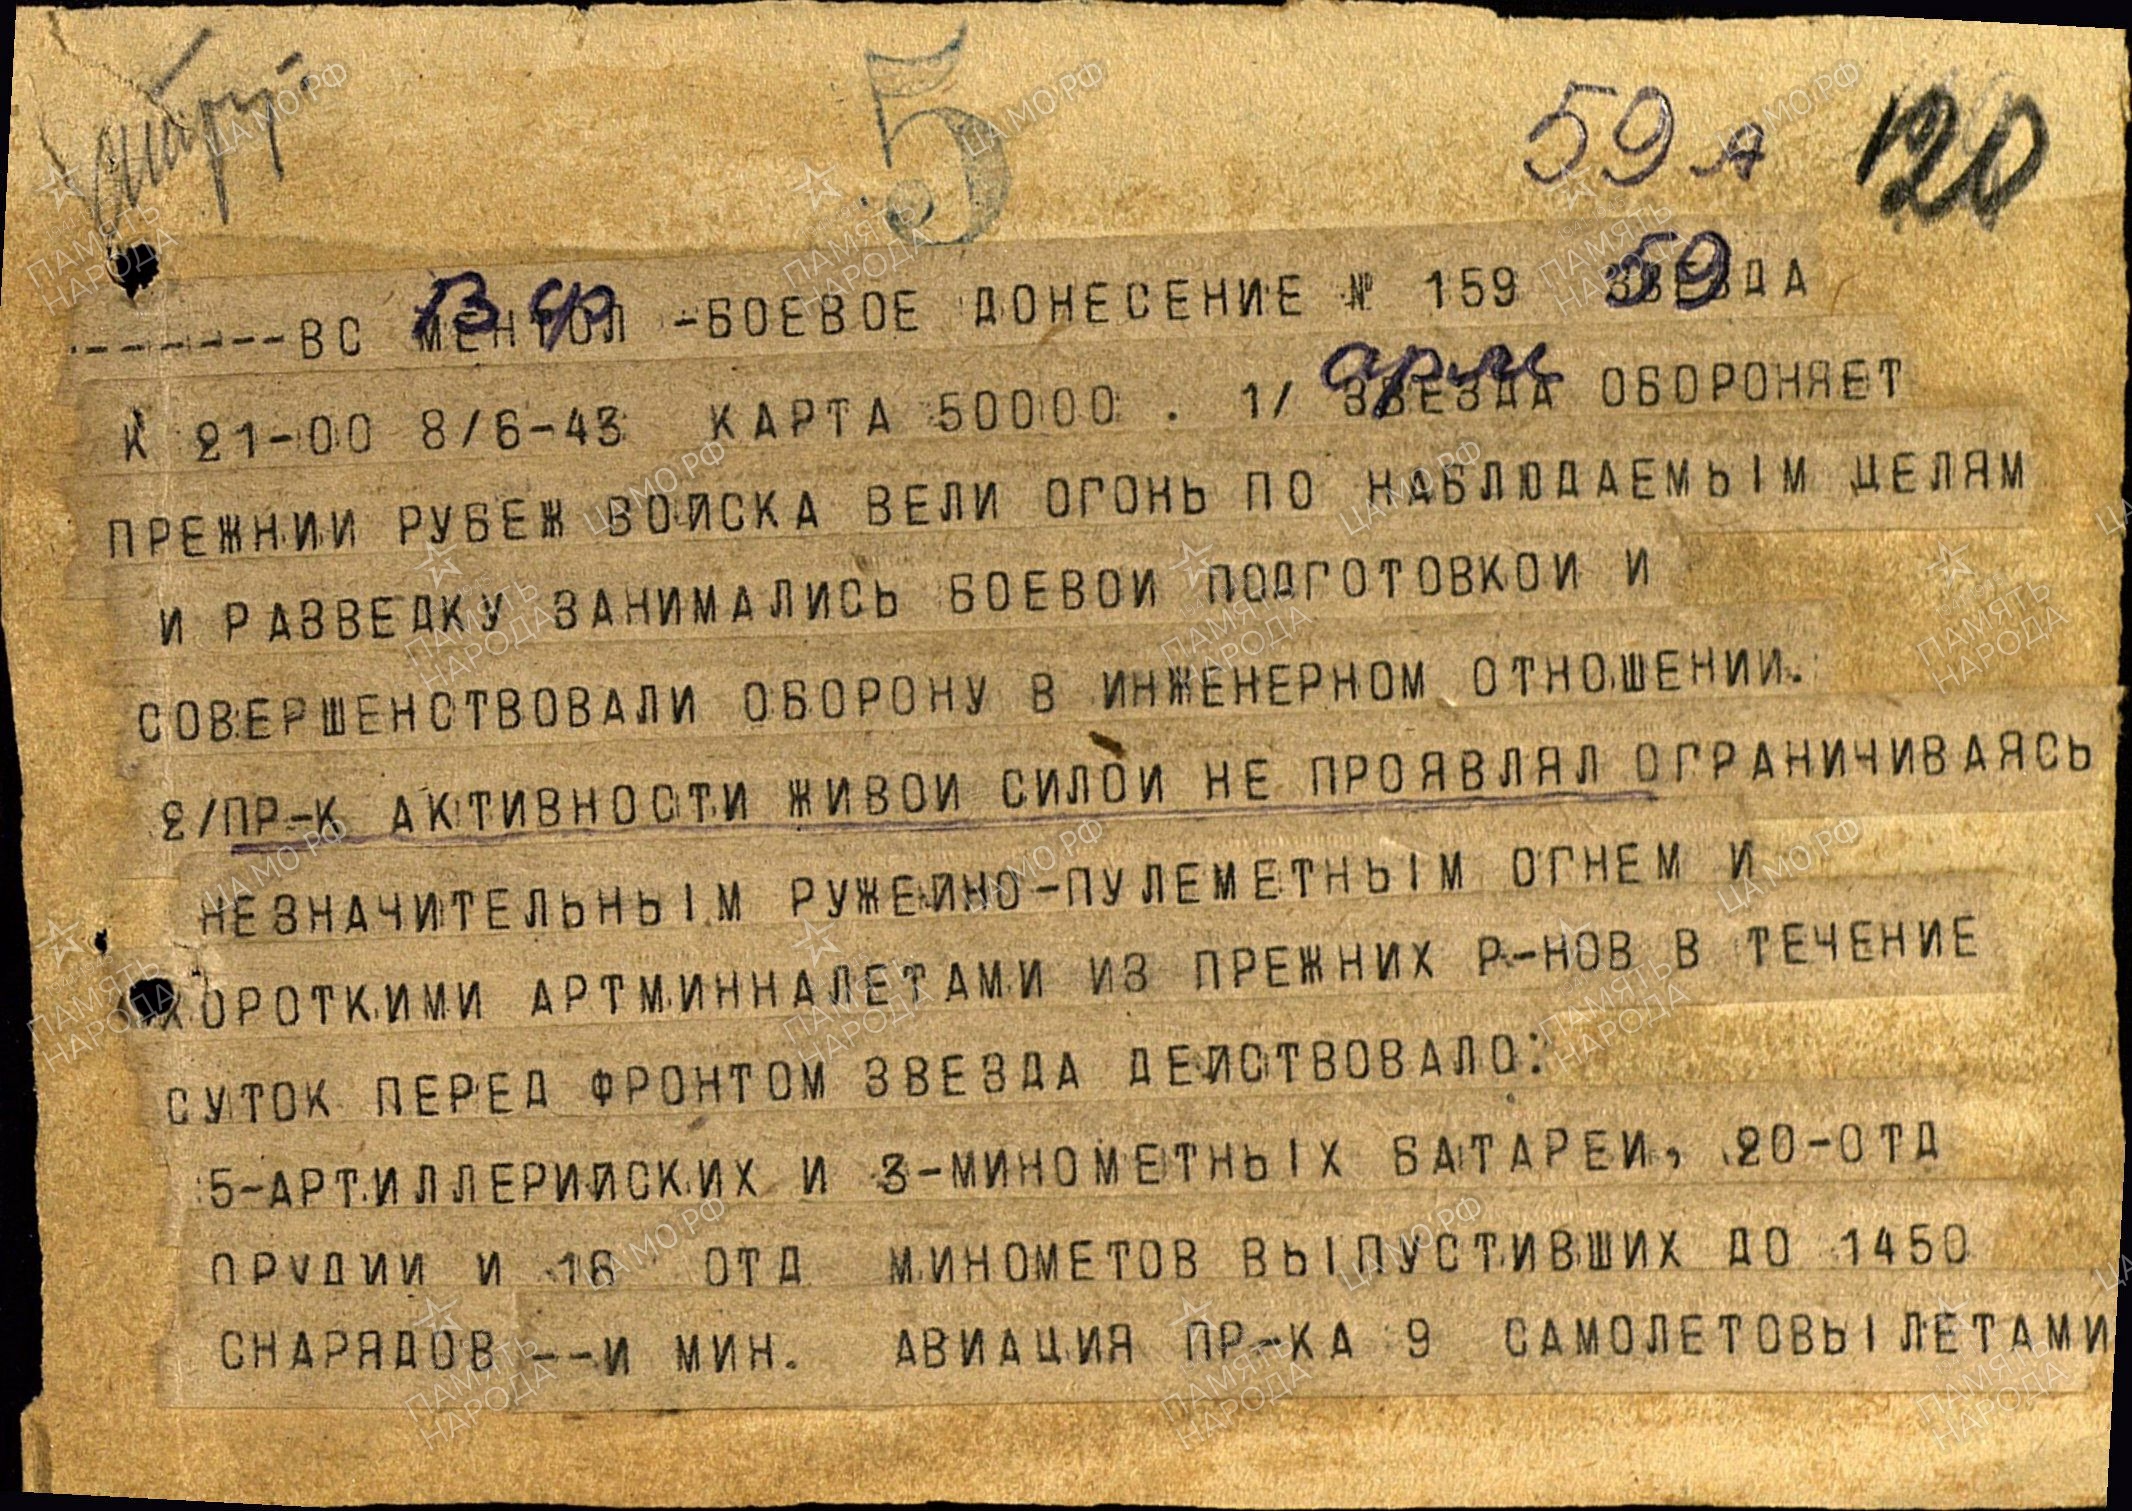 5
59 А 120
В ф 59
-------ВС МЕНТОЛ -БОЕВОЕ ДОНЕСЕНИЕ № 159 ЗВЕЗДА
арм
К 21-00 8/6-43 КАРТА 50000 . 1/ ЗВЕЗДА ОБОРОНЯЕТ
ПРЕЖНИИ РУБЕЖ ВОИСКА ВЕЛИ ОГОНЬ ПО НАБЛЮДАЕМЫМ ЦЕЛЯМ
И РАЗВЕДКУ ЗАНИМАЛИСЬ БОЕВОИ ПОДГОТОВКОИ И
СОВЕРШЕНСТВОВАЛИ ОБОРОНУ В ИНЖЕНЕРНОМ ОТНОШЕНИИ.
2/ПР-К АКТИВНОСТИ ЖИВОИ СИЛОИ НЕ ПРОЯВЛЯЛ ОГРАНИЧИВАЯСЬ
НЕЗНАЧИТЕЛЬНЫМ РУЖЕИНО-ПУЛЕМЕТНЫМ ОГНЕМ И
КОРОТКИМИ АРТМИННАЛЕТАМИ ИЗ ПРЕЖНИХ Р-НОВ В ТЕЧЕНИЕ
СУТОК ПЕРЕД ФРОНТОМ ЗВЕЗДА ДЕИСТВОВАЛО:
5-АРТИЛЛЕРИИСКИХ И 3-МИНОМЕТНЫХ БАТАРЕИ, 20-ОТД
ОРУДИИ И 16 ОТД МИНОМЕТОВ ВЫПУСТИВШИХ ДО 1450
СНАРЯДОВ --И МИН. АВИАЦИЯ ПР-КА 9 САМОЛЕТОВЫЛЕТАМИ